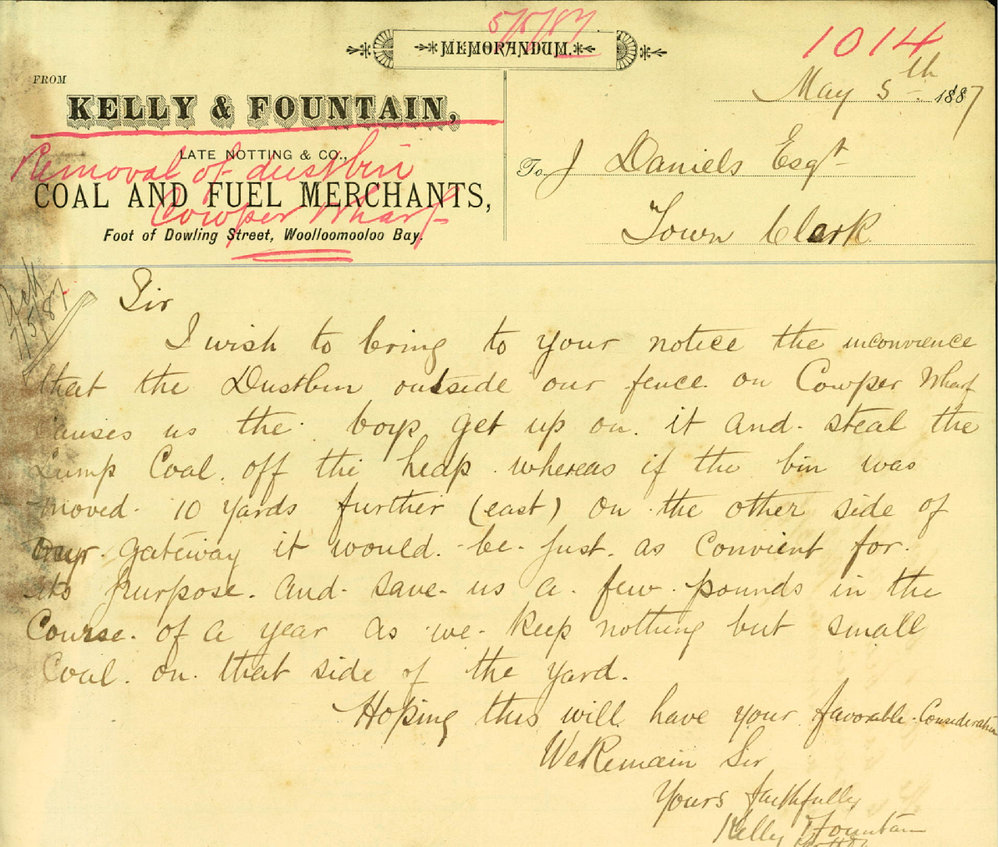 5/5/87
MEMORANDUM.
1014
May 5th 1887
FROM
KELLY & FOUNTAIN,
LATE NOTTING & CO.,
Removal of dustbin
COAL AND FUEL MERCHANTS,
Cowper Wharf
Foot of Dowling Street, Woolloomooloo Bay.
To J Daniels Esqr
Town Clerk
7/5/87
Sir
I wish to bring to your notice the inconvience
that the Dustbin outside our fence on Cowper Wharf
causes us the boys get up on it and steal the
Lump Coal off the heap whereas if the bin was
moved 10 yards further (east) on the other side of
our gateway it would be just as convient for
its purpose and save us a few pounds in the
Course of a year as we keep nothing but small
Coal on that side of the yard.
Hoping this will have your favorable Consideration
We Remain Sir
Yours faithfully
Kelly Fountain